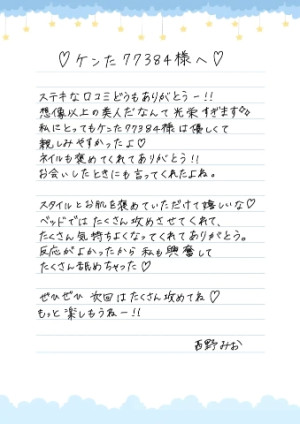 ♡ケンた77384様へ♡
ステキな口コミどうもありがとうー!!
想像以上の美人だなんて光栄すぎます♪♪
私にとってもケンた77384様は優しくて
親しみやすかったよ♡
ネイルも褒めてくれてありがとう!!
お会いしたときにも言ってくれたよね。
スタイルとお肌を褒めていただけて嬉しいな♡
ベッドではたくさん攻めさせてくれて、
たくさん気持ちよくなってくれてありがとう。
反応がよかったから私も興奮して
たくさん舐めちゃった♡
ぜひぜひ次回はたくさん攻めてね♡
もっと楽しもうねー!!
西野みお